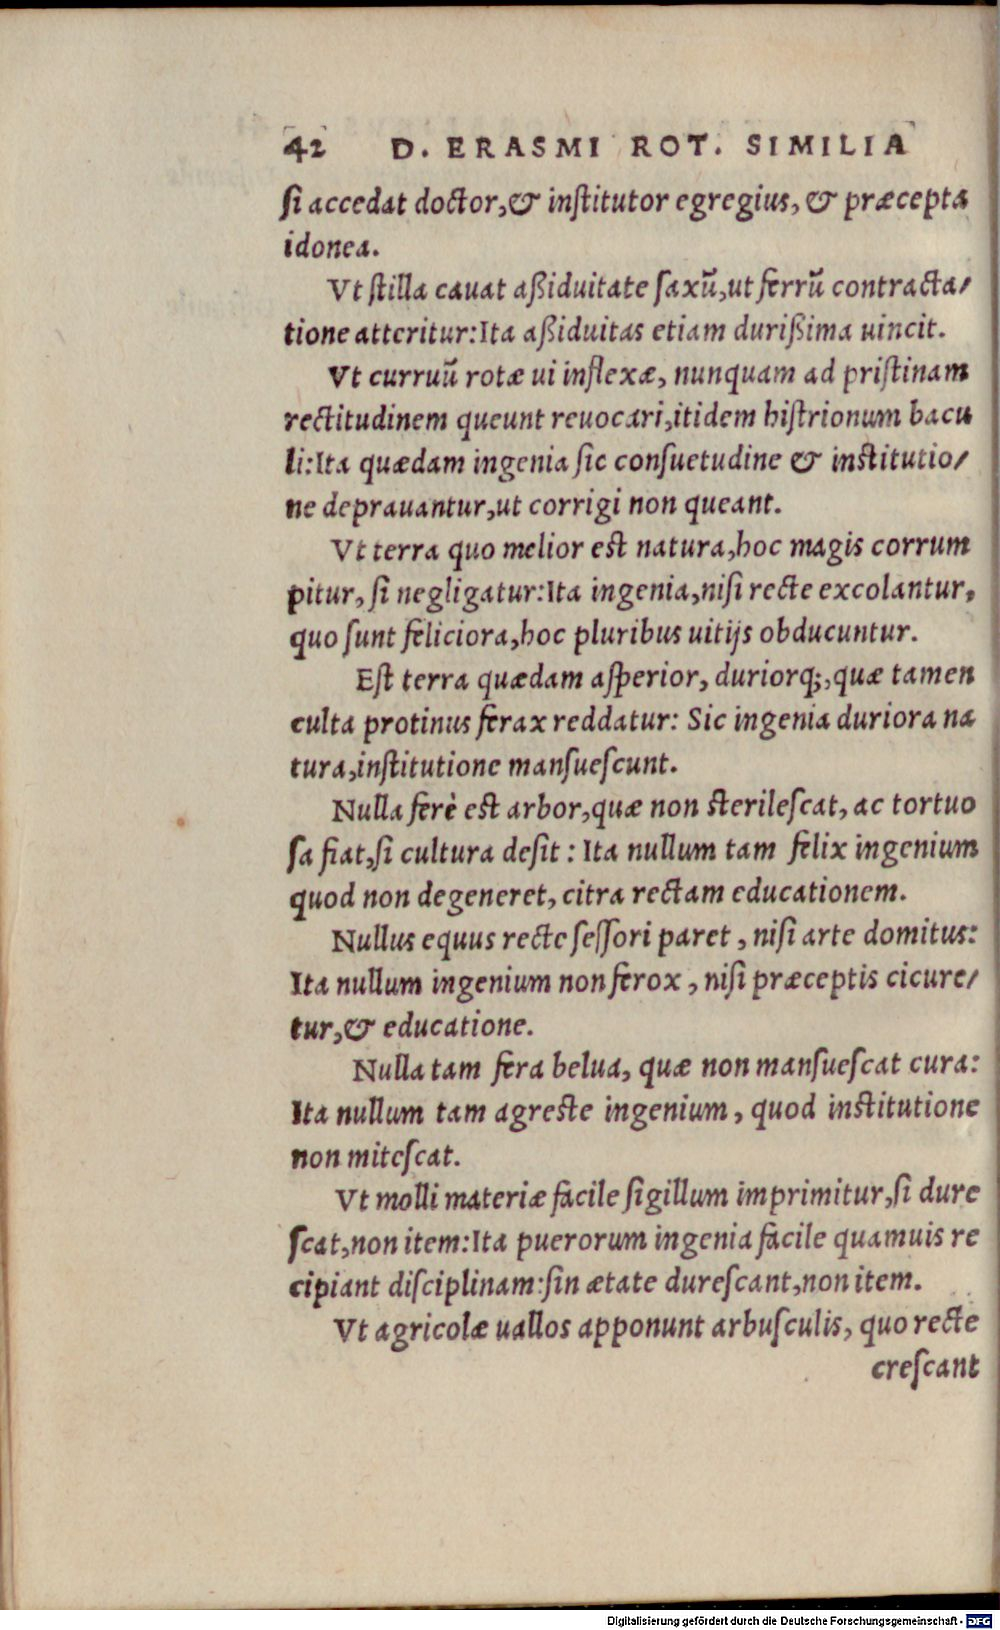 42 D. ERASMI ROT. SIMILIA
ſi accedat doctor,& inſtitutor egregius, & præcepta
idonea.
Vt ſtilla cauat aßiduitate ſaxũ,ut ferrũ contracta/
tione atteritur:Ita aßiduitas etiam durißima uincit.
Vt curruũ rotæ ui inflexæ, nunquam ad priſtinam
rectitudinem queunt reuocari,itidem hiſtrionum bacu
li:Ita quædam ingenia ſic conſuetudine & inſtitutio/
ne deprauantur,ut corrigi non queant.
Vt terra quo melior eſt natura,hoc magis corrum
pitur, ſi negligatur:Ita ingenia,niſi recte excolantur,
quo ſunt feliciora,hoc pluribus uitijs obducuntur.
Eſt terra quædam aſperior, duriorq;,quæ tamen
culta protinus ferax reddatur: Sic ingenia duriora na
tura,inſtitutione manſueſcunt.
Nulla ferè eſt arbor,quæ non ſterileſcat, ac tortuo
ſa fiat,ſi cultura deſit : Ita nullum tam felix ingenium
quod non degeneret, citra rectam educationem.
Nullus equus recte ſeſſori paret , niſi arte domitus:
Ita nullum ingenium non ferox , niſi præceptis cicure/
tur,& educatione.
Nulla tam fera belua, quæ non manſueſcat cura:
Ita nullum tam agreſte ingenium, quod inſtitutione
non miteſcat.
Vt molli materiæ facile ſigillum imprimitur,ſi dure
ſcat,non item:Ita puerorum ingenia facile quamuis re
cipiant diſciplinam:ſin ætate dureſcant,non item.
Vt agricolæ uallos apponunt arbuſculis, quo recte
creſcant
Digitalisierung gefördert durch die Deutsche Forschungsgemeinschaft - DFG